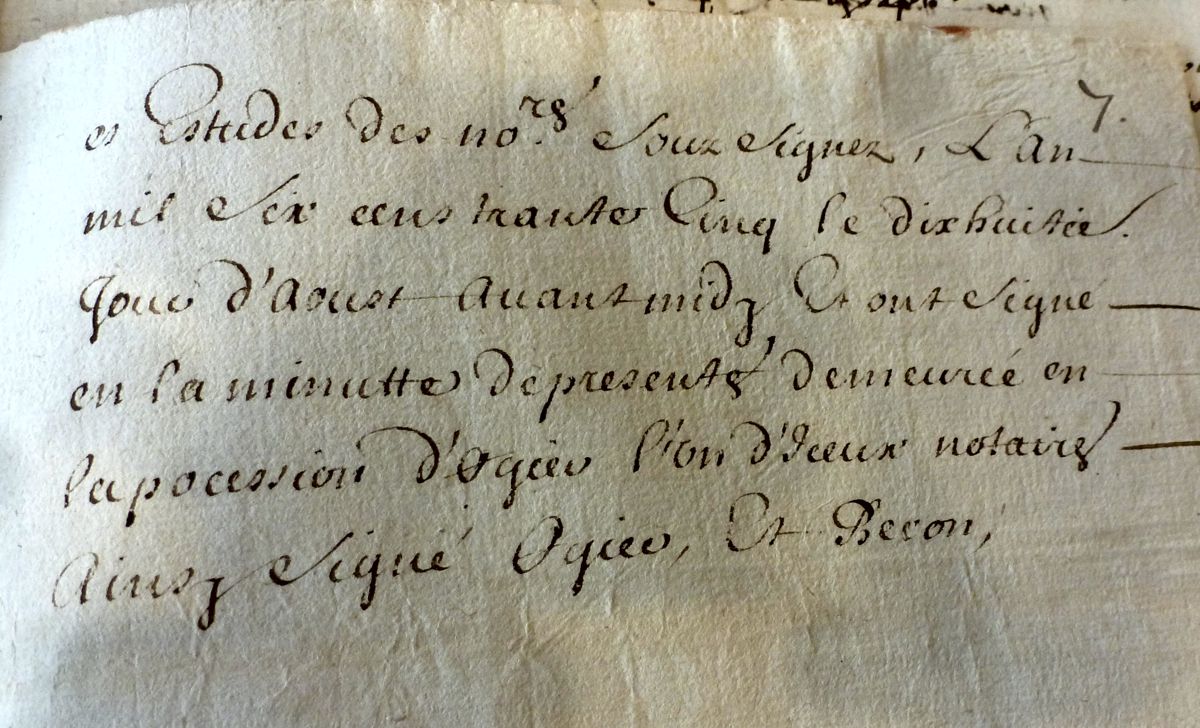 7.
es Estudes des no.res souz signez, L'an
mil six cens trante Cinq le dixhuitie.
Jour d'Aoust Auant midy Et ont signé
en la minutte de presentes demeurée en
la pocession d'Ogier l'on d'Iceux notaires
Ainsy signé Ogier, Et Becon,